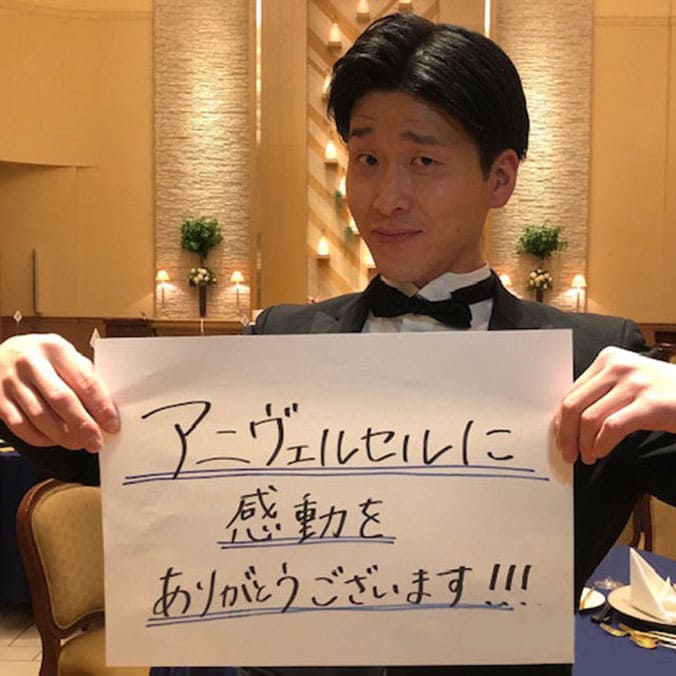 アニヴェルセルに
感動を
ありがとうございます!!!